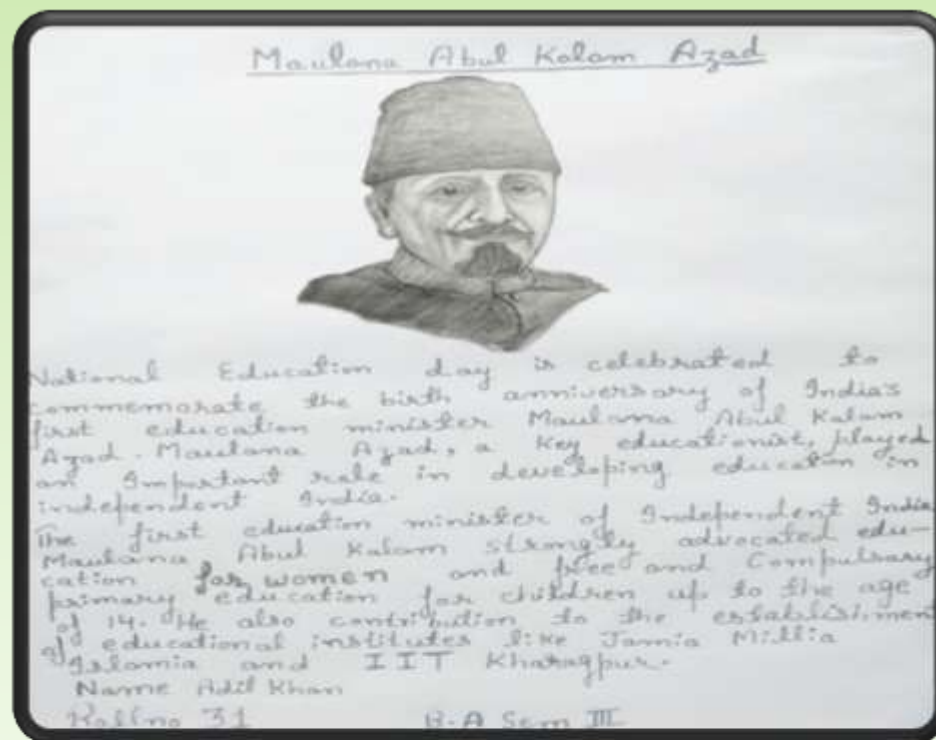 Maulana Abul Kalam Azad
National Education day is celebrated to
commemorate the birth anniversary of India's
first education minister Maulana Abul Kalam
Azad. Maulana Azad, a key educationist, played
an Important role in developing education in
independent India.
The first education minister of Independent India
Maulana Abul Kalam strongly advocated edu-
cation for women and free and Compulsary
primary education for children up to the age
of 14. He also contribution to the establishment
of educational institutes like Jamia Millia
Islamia and IIT Kharagpur.
Name Adil Khan
Roll no 31 B.A Sem III